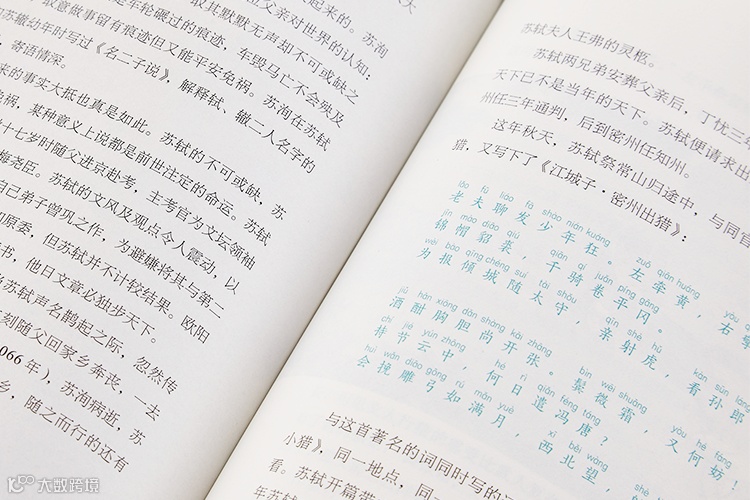 起来的。苏洵
取其默默无声却不可或缺之
是车轮碾过的痕迹,车毁马亡不会殃及
取意做事留有痕迹但又能平安免祸。苏洵在苏轼
苏辙幼年时写过《名二子说》,解释轼、辙二人名字的
寄语情深。
来的事实大抵也真是如此。苏轼的不可或缺,苏
免祸,某种意义上说都是前世注定的命运。苏轼
十七岁时随父进京赴考,主考官为文坛领袖
梅尧臣。苏轼的文风及观点令人震动,以
自己弟子曾巩之作,为避嫌将其与第二
原委,但苏轼并不计较结果。欧阳
书,他日文章必独步天下。
苏轼声名鹊起之际,忽然传
刻随父回家乡奔丧,一去
066年),苏洵病逝,苏
乡,随之而行的还有
苏轼夫人王弗的灵柩。
苏轼两兄弟安葬父亲后,丁忧三年
天下已不是当年的天下。苏轼便请求出
州任三年通判,后到密州任知州。
这年秋天,苏轼祭常山归途中,与同官
猎,又写下了《江城子·密州出猎》:
lǎo fū liáo fā shào nián kuáng zuǒ qiān huáng yòu
老夫聊发少年狂。左牵黄,右擎
jǐn mào diāo qiú qiān qí juǎn píng gāng
锦帽貂裘,千骑卷平冈。
wèi bào qīng chéng suí tài shǒu qīn shè hǔ kàn sūn láng
为报倾城随太守,亲射虎,看孙郎
jiǔ hān xiōng dǎn shàng kāi zhāng bìn wēi shuāng yòu hé fáng
酒酣胸胆尚开张。鬓微霜,又何妨!
chí jié yún zhōng hé rì qiǎn féng táng
持节云中,何日遣冯唐?
huì wǎn diāo gōng rú mǎn yuè xī běi wàng
会挽雕弓如满月,西北望,
与这首著名的词同时写的
小猎》,同一地点,同一
看。苏轼开篇带
年苏轼
大数跨境